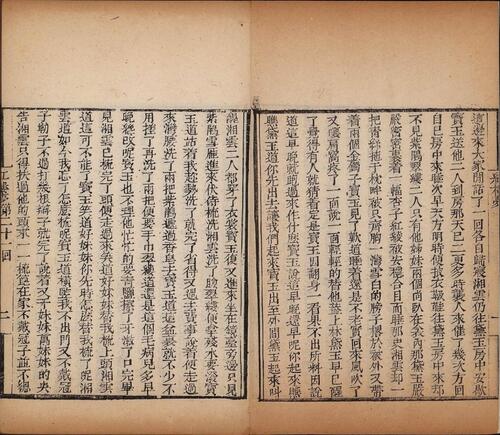 這邊來大家閒話了一回各自歸寢湘雲仍往黛玉房中安歇
寶玉送他二人到房那天已二更多時襲人來催了幾次方回
自己房中來睡次早天方明時便披衣靸鞋往黛玉房中來却
不見紫鵑翠縷二人只有他姊妹兩個尚臥在衾內那黛玉嚴
嚴密密裹着一幅杏子紅綾被安穩合目而睡那史湘雲却一
把青絲拖于枕畔被只齊胸一灣雪白的膀子撂於被外又帶
着兩個金鐲子寶玉見了歎道睡着還是不老實回來風吹了
又嚷肩窩疼了一面說一面輕輕的替他蓋上林黛玉早已醒
了覺得有人就猜着定是寶玉因翻身一看果不出所料因說
道這早晚就跑過來作什麽寶玉說道這還早呢你起來瞧
瞧黛玉道你先出去讓我們起來寶玉出至外間黛玉起來叫
醒湘雲二人都穿了衣裳寶玉復又進來坐在鏡臺旁邊只見
紫鵑雪雁進來伏侍梳洗湘雲洗了臉翠縷便拿殘水要潑寶
玉道站着我趁勢兒洗了就完了省得又過去費事說着便走過
來彎腰洗了兩把紫鵑遞過香皂去寶玉道這盆裏就不少不
用搓了再洗了兩把便要手巾翠縷道還是這個毛病兒多早
晚纔改呢寶玉也不理他忙忙的要青鹽擦了牙漱了口完畢
見湘雲已梳完了頭便走過來笑道好妹妹替我梳上頭湘雲
道這可不能了寶玉笑道好妹妹你先時怎麽替我梳了呢湘
雲道如今我忘了怎麽梳呢寶玉道橫豎我不出門又不戴冠
子勒子不過打幾根辮子就完了說着又千妹妹萬妹妹的央
告湘雲只得扶過他的頭來一一梳篦在家不戴冠子並不總
第二十一回
二